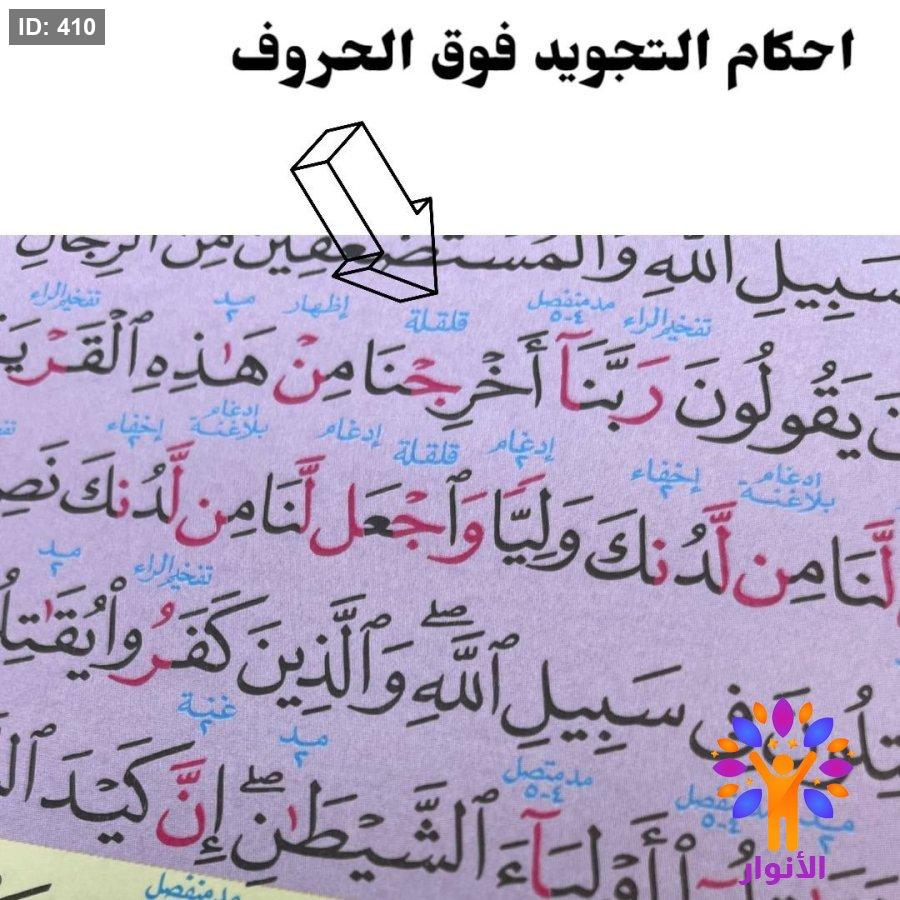 ID: 410
احكام التجويد فوق الحروف
سَبِيلِ ٱللَّهِ وَٱلْمُسْتَضْعَفِينَ مِنَ ٱلرِّجَالِ
تفخيم الراء مد منفصل ٤-٥ قلقلة إظهار مد ٢ تفخيم الراء
يَقُولُونَ رَبَّنَآ أَخْرِجْنَا مِنْ هَٰذِهِ ٱلْقَرْيَ
إدغام بلاغنة إخفاء ٢ إدغام ٢ قلقلة إدغام إدغام بلاغنة إخفاء ٢
لَّنَا مِن لَّدُنكَ وَلِيًّا وَٱجْعَل لَّنَا مِن لَّدُنكَ نَصِ
تفخيم الراء مد ٢
فِى سَبِيلِ ٱللَّهِ ۖ وَٱلَّذِينَ كَفَرُوا۟ يُقَٰتِلُ
مد متصل ٤-٥ مد ٢ غنية ٢
أَوْلِيَآءَ ٱلشَّيْطَٰنِ ۖ إِنَّ كَيْدَ
مد منفصل
الأنوار